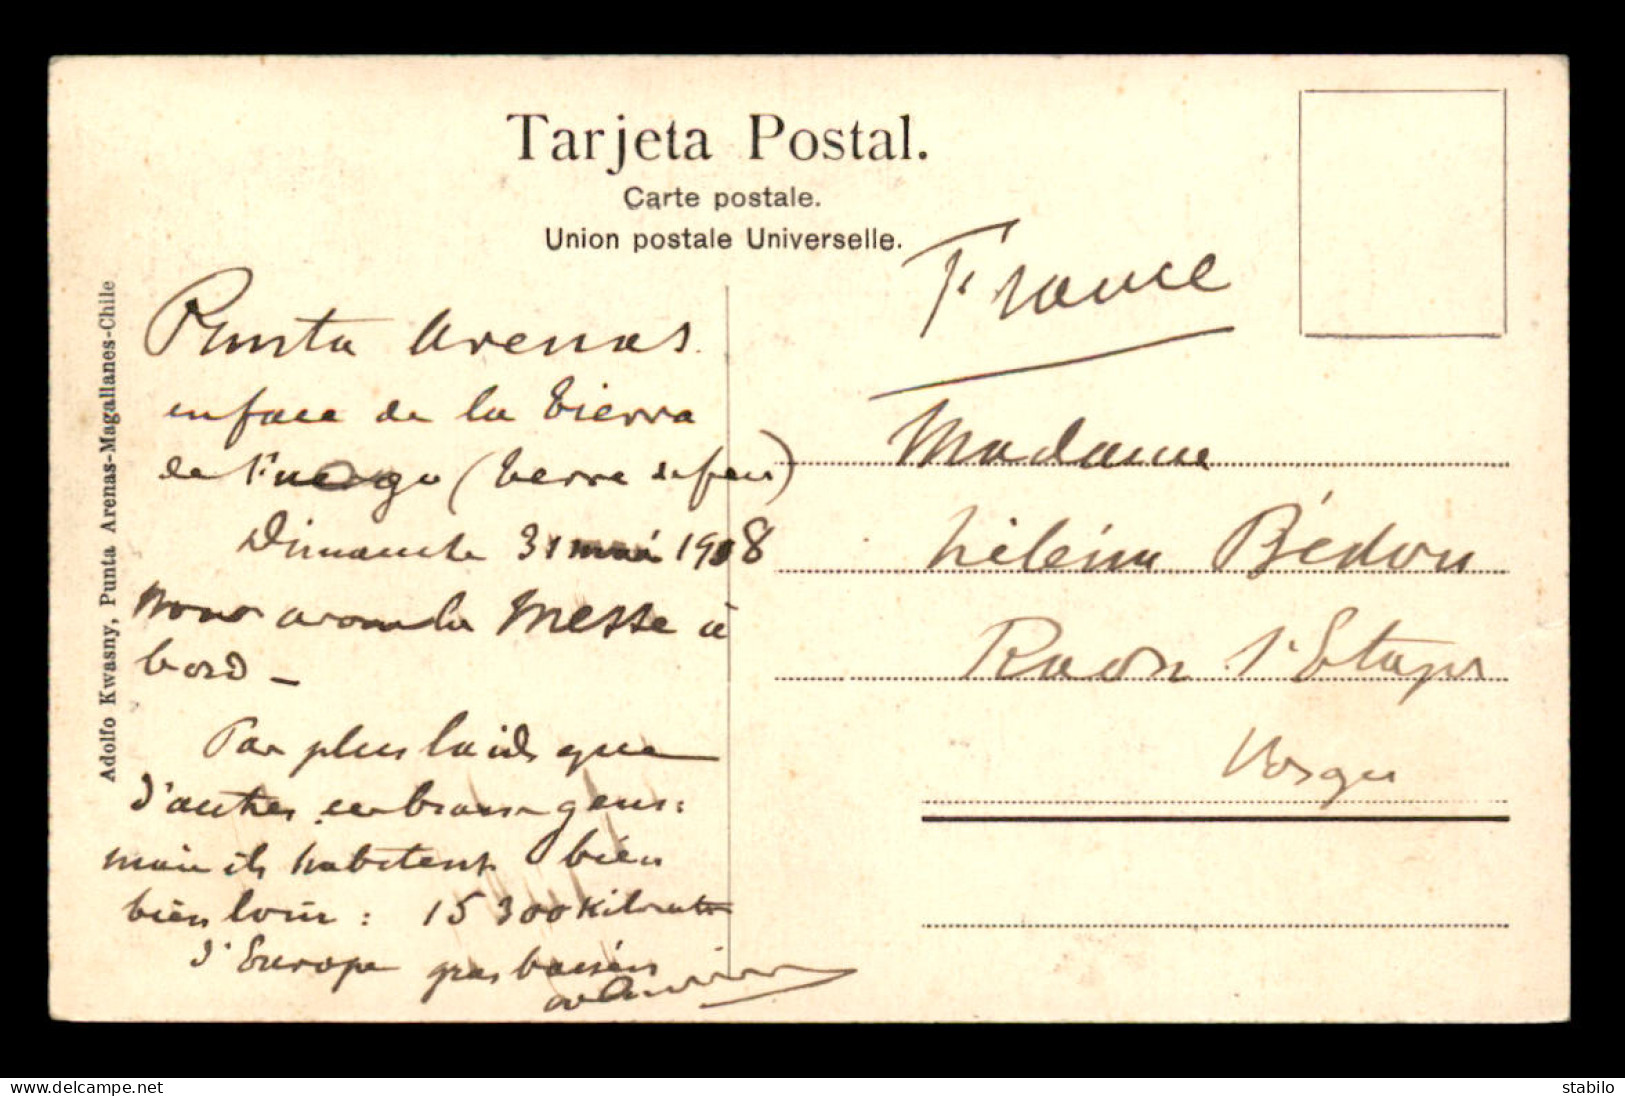 Tarjeta Postal.
Carte postale.
Union postale Universelle.
Adolfo Kwasny, Punta Arenas-Magallanes-Chile
Punta Arenas.
en face de la Tierra
de Fuego (terre de feu)
Dimanche 31 mai 1908
Nous avons la Messe à
bord -
Pas plus laids que
d'autres ces braves gens:
mais ils habitent bien
bien loin: 15 300 Kilomètres
d'Europe gros baisers
France
Madame
Bédon
Raon l'Etape
Vosges
www.delcampe.net
stabilo